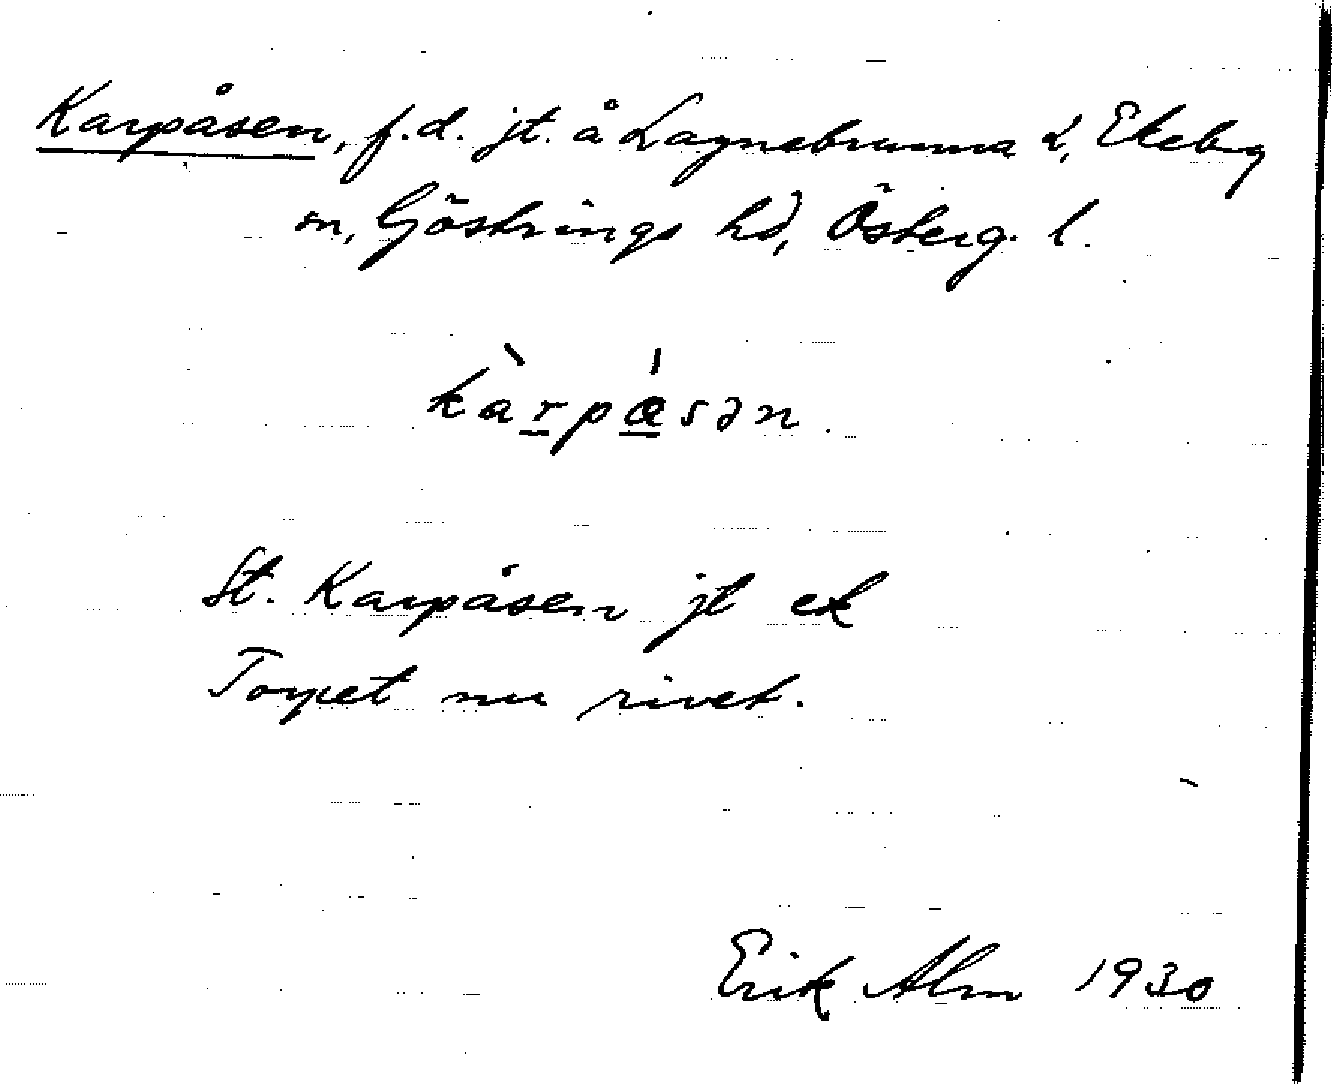 Karpåsen, f.d. jt. å Lagnebrunna L, Ekeby
sn, Göstrings hd, Österg. l.
ka̠rpåsən.
St. Karpåsen jt ek
Torpet nu rivet.
Erik Alm 1930